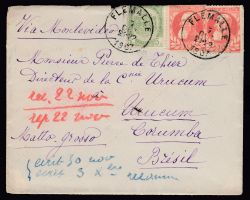 Via Montevideo
FLEMALLE
1907
FLEMALLE
1907
Monsieur Pierre de Thier
Directeur de la Cnie Urucum
rec. 22 nov
rep 22 nov
Urucum
Corumba
Matto-Grosso
Brésil
écrit 30 nov
écrit 3 Xbre